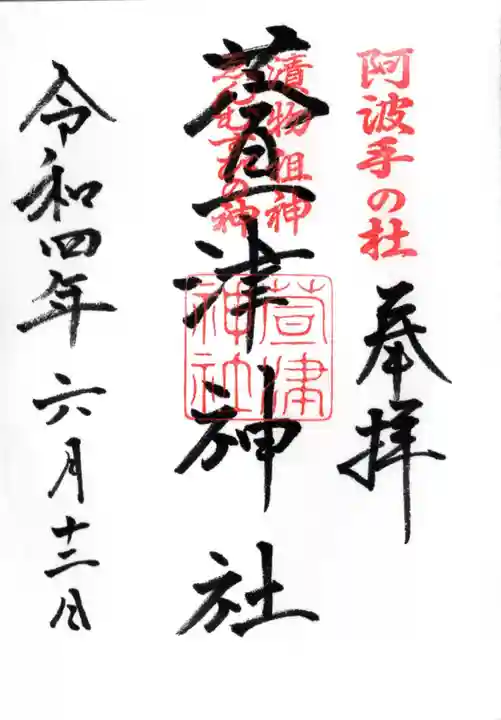 阿波手の杜
奉拝
漬物祖神
ゑんむすびの神
萱津神社
萱津
神社
令和四年 六月十三日